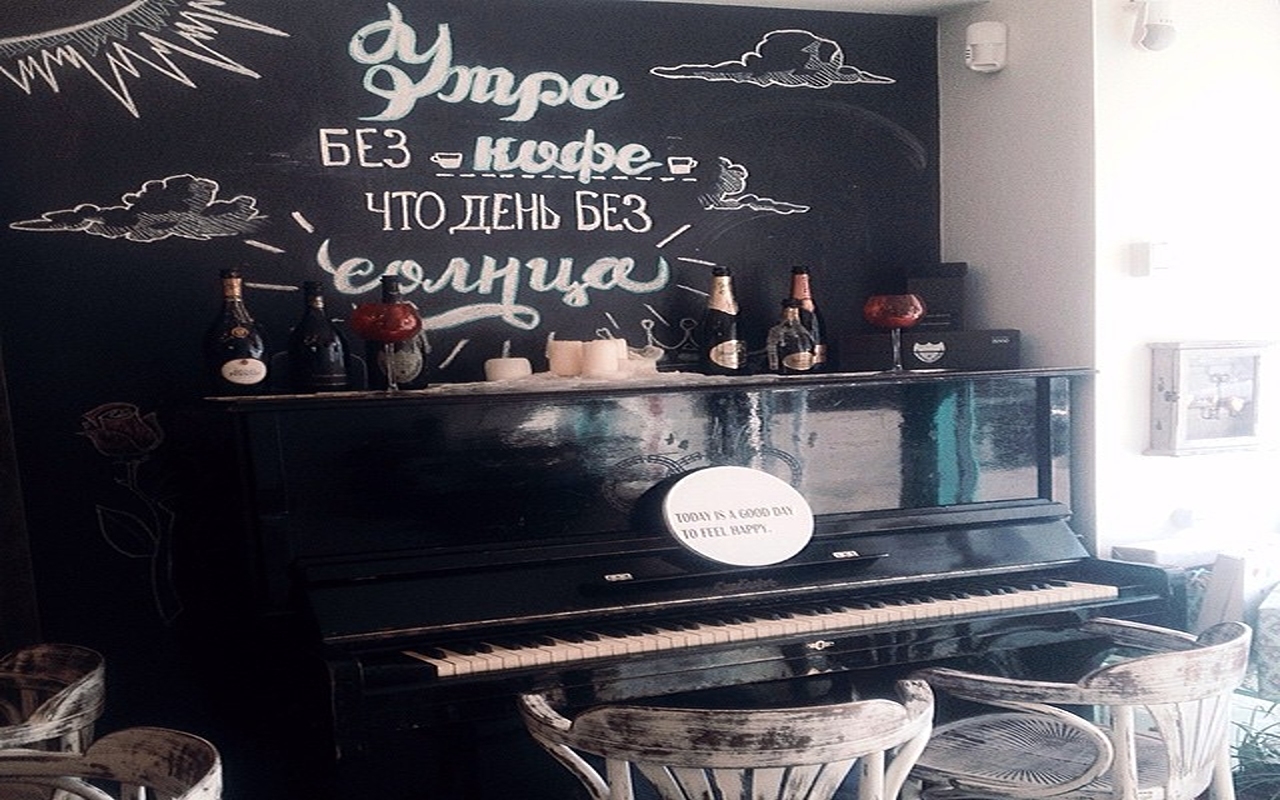 Утро
БЕЗ кофе
ЧТО ДЕНЬ БЕЗ
солнца
TODAY IS A GOOD DAY
TO FEEL HAPPY.